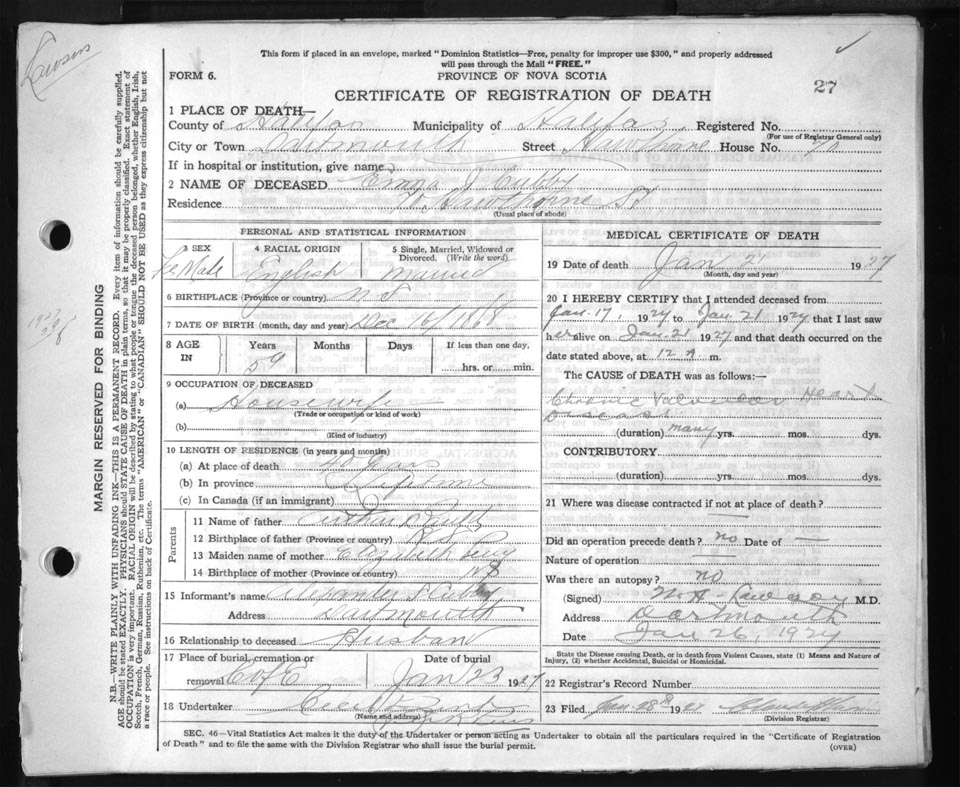 Lawson
This form if placed in an envelope, marked "Dominion Statistics—Free, penalty for improper use $300," and properly addressed
will pass through the Mail "FREE."
FORM 6.
PROVINCE OF NOVA SCOTIA
CERTIFICATE OF REGISTRATION OF DEATH
27
1 PLACE OF DEATH—
County of Halifax Municipality of Halifax Registered No.
(For use of Registrar General only)
City or Town Dartmouth Street Hawthorne House No. 70
If in hospital or institution, give name
2 NAME OF DECEASED Emma J Cubby
Residence 70 Hawthorne St
(Usual place of abode)
PERSONAL AND STATISTICAL INFORMATION
3 SEX
Female
4 RACIAL ORIGIN
English
5 Single, Married, Widowed or
Divorced. (Write the word).
Married
6 BIRTHPLACE (Province or country) N S
7 DATE OF BIRTH (month, day and year) Dec 16/1868
8 AGE
IN
Years Months Days If less than one day,
59 hrs. or min.
9 OCCUPATION OF DECEASED
(a) Housewife
(Trade or occupation or kind of work)
(b)
(Kind of industry)
10 LENGTH OF RESIDENCE (in years and months)
(a) At place of death 40 years
(b) In province Lifetime
(c) In Canada (if an immigrant)
Parents
11 Name of father Arthur
12 Birthplace of father (Province or country) N S
13 Maiden name of mother Elizabeth
14 Birthplace of mother (Province or country) N S
15 Informant's name
Address Dartmouth
16 Relationship to deceased Husband
17 Place of burial, cremation or
removal C of E
Date of burial
Jan 23 1927
18 Undertaker
(Name and address)
MEDICAL CERTIFICATE OF DEATH
19 Date of death Jan 21 1927
(Month, day and year)
20 I HEREBY CERTIFY that I attended deceased from
Jan. 17, 1927 to Jan. 21 1927 that I last saw
her alive on Jan 21 1927 and that death occurred on the
date stated above, at 12 A m.
The CAUSE OF DEATH was as follows:—
Chronic Valvular Heart
Disease
(duration) many yrs. mos. dys.
CONTRIBUTORY
(duration) yrs. mos. dys.
21 Where was disease contracted if not at place of death?
—
Did an operation precede death? no Date of —
Nature of operation —
Was there an autopsy? no
(Signed) M.D.
Address Dartmouth
Date Jan 26, 1927
State the Disease causing Death, or in death from Violent Causes, state (1) Means and Nature of
Injury, (2) whether Accidental, Suicidal or Homicidal.
22 Registrar's Record Number
23 Filed Jan. 28 1927
(Division Registrar)
SEC. 46—Vital Statistics Act makes it the duty of the Undertaker or person acting as Undertaker to obtain all the particulars required in the "Certificate of Registration
of Death" and to file the same with the Division Registrar who shall issue the burial permit.
(OVER)
MARGIN RESERVED FOR BINDING
N.B.—WRITE PLAINLY WITH UNFADING INK—THIS IS A PERMANENT RECORD. Every item of information should be carefully supplied.
AGE should be stated EXACTLY. PHYSICIANS should STATE CAUSE OF DEATH in plain terms, so that it may be properly classified. Exact statement of
OCCUPATION is very important. RACIAL ORIGIN will be described by stating to what people or tongue the deceased person belonged, whether English, Irish,
Scotch, French, German, Russian, Ruthenian, etc. The terms "AMERICAN" or "CANADIAN" SHOULD NOT BE USED as they express citizenship but not
a race or people. See instructions on back of Certificate.